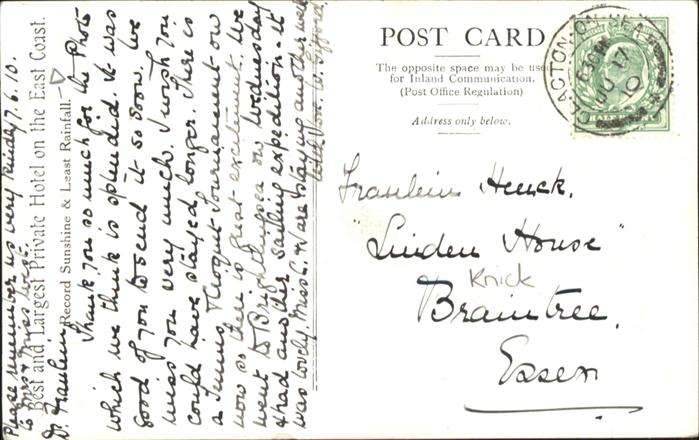 Best and Largest Private Hotel on the East Coast.
Record Sunshine & Least Rainfall.
7.6.10.
Dr. Fraulein
Thank you so much for the Photo
which we think is splendid. It was
good of you to send it so soon. We
miss you very much. I wish you
could have stayed longer. There is
a Tennis & Croquet Tournament on
now so there is great excitement. We
went to Brightlingsea on Wednesday
& had another sailing expedition - it
was lovely. Miss L. & W are staying another week
W. Gifford.
Please remember us very kindly
to Mrs & Miss
POST CARD
The opposite space may be used
for Inland Communication.
(Post Office Regulation)
Address only below.
CLACTON-ON-SEA
JU 17
10
Fraulein Heuck.
"Linden House"
Knick
Braintree.
Essex